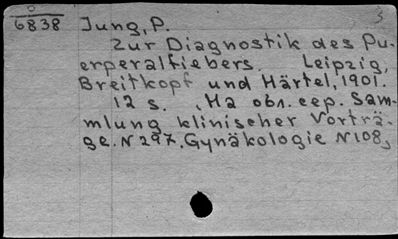 0
6838 Jung, P. 3
Zur Diagnostik des Pu-
erperalfiebers. Leipzig,
Breitkopf und Härtel, 1901.
12 s. На обл. сер. Sam-
mlung klinischer Vorträ-
ge. N 297, Gynäkologie N 108,